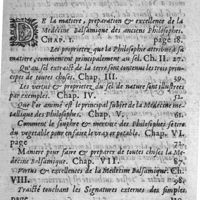 DE la matiere, preparation & excellence de la
Medecine Balsamique des anciens Philosophes.
CHAP. I. page 18.
Les proprietez, que la Philosophie attribuë à sa
matiere, commencement principalement au sel. Ch. II. 27.
Qu'au sel extrait de la terre sont contenus les trois prin-
cipes de toutes choses. Chap. III. 39.
Les vertus & proprietez, du sel de nature sont illustrées
par exemples. Chap. IV.
Que l'or animé est le principal subjet de la Medecine me-
tallique des Philosophes. Chap. V. 61.
Comment le soulphre & mercure des Philosophes se tire
du vegetable pour en faire le vray or potable. Chap. VI.
page 72.
Maniere pour faire & preparer de toutes choses la Me-
decine Balsamique. Chap. VII. 87.
Vertus & excellences de la Medecine Balsamique. Ch.
VIII. 98.
Traicté touchant les Signatures externes des simples,
page